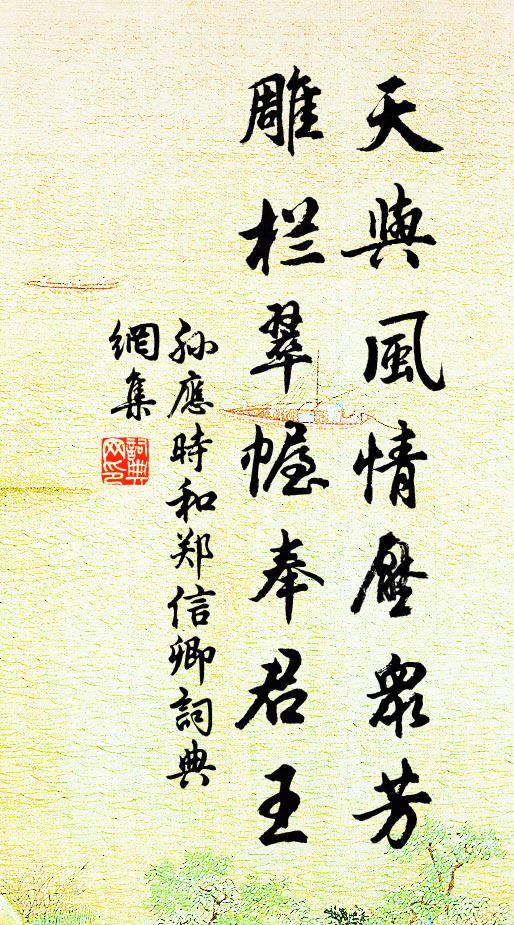 天與風情壓眾芳
雕栏翠幄奉君王
孙應時和郑信卿詞典
網集
詞典网印